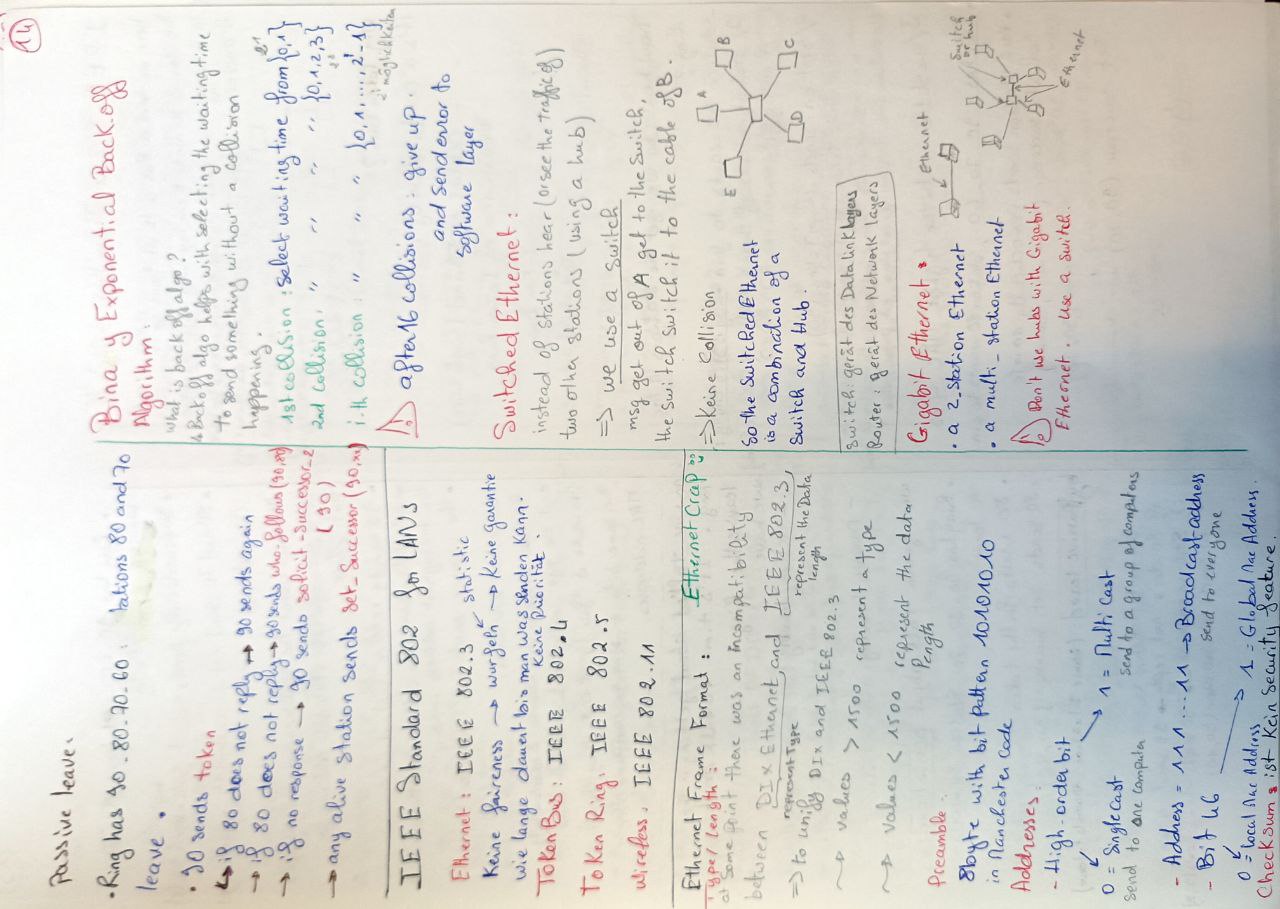 14
Passive leave.
• Ring has 90-80-70-60 : tations 80 and 70
leave.
• 90 sends token
↳ if 80 does not reply → 90 sends again
→ if 80 does not reply → 90 sends who-follows (90,80)
→ if no response → 90 sends solicit-successor-2
(90)
→ any alive station sends set-successor (90,xx)
IEEE Standard 802 for LANs
Ethernet : IEEE 802.3 statistic
Keine faireness → würfeln → Keine garantie
wie lange dauert bis man was senden kann.
Keine Priorität.
Token Bus : IEEE 802.4
Token Ring : IEEE 802.5
Wireless : IEEE 802.11
Ethernet Frame Format : Ethernet Crap
Type/length :
at some point there was an incompatibility
between DIX Ethernet, and IEEE 802.3,
represent Type
represent the Data
length
=> to unify DIX and IEEE 802.3
→ values > 1500 represent a type
→ values < 1500 represent the data
length
Preamble:
8byte with bit patten 10101010
in Manchester Code
Addresses:
- High-order bit
0 = Singlecast
send to one computer
1 = Multi Cast
send to a group of computers
- Address = 111....11 → Broadcast address
send to everyone
- Bit 46
0 = local Mac Address
1 = Global Mac Address.
Checksum: ist Kein Security feature.
Bina y Exponential Back-off
Algorithm:
what is back off algo?
↳ Back off algo helps with selecting the waiting time
to send something without a collision
happening.
1st collision : Select waiting time from {0,1}
2nd collision : " " " {0,1,2,3}
i-th collision : " " " {0,1,...,2^i-1}
2^i möglichkeiten
⚠ after 16 collisions : give up
and send error to
software layer
Switched Ethernet :
instead of stations hear (or see the traffic of
two other stations (using a hub)
=> we use a switch
msg get out of A get to the switch,
the switch switch it to the cable of B.
E
A
B
C
D
=> Keine Collision
So the Switched Ethernet
is a combination of a
Switch and Hub.
Switch : gerät des Datalink layers
Router : gerät des Network layers
Gigabit Ethernet :
• a 2-station Ethernet
Ethernet
• a multi-station Ethernet
Switch
or hub
Ethernet
⚠ Don't use hubs with Gigabit
Ethernet. Use a switch.